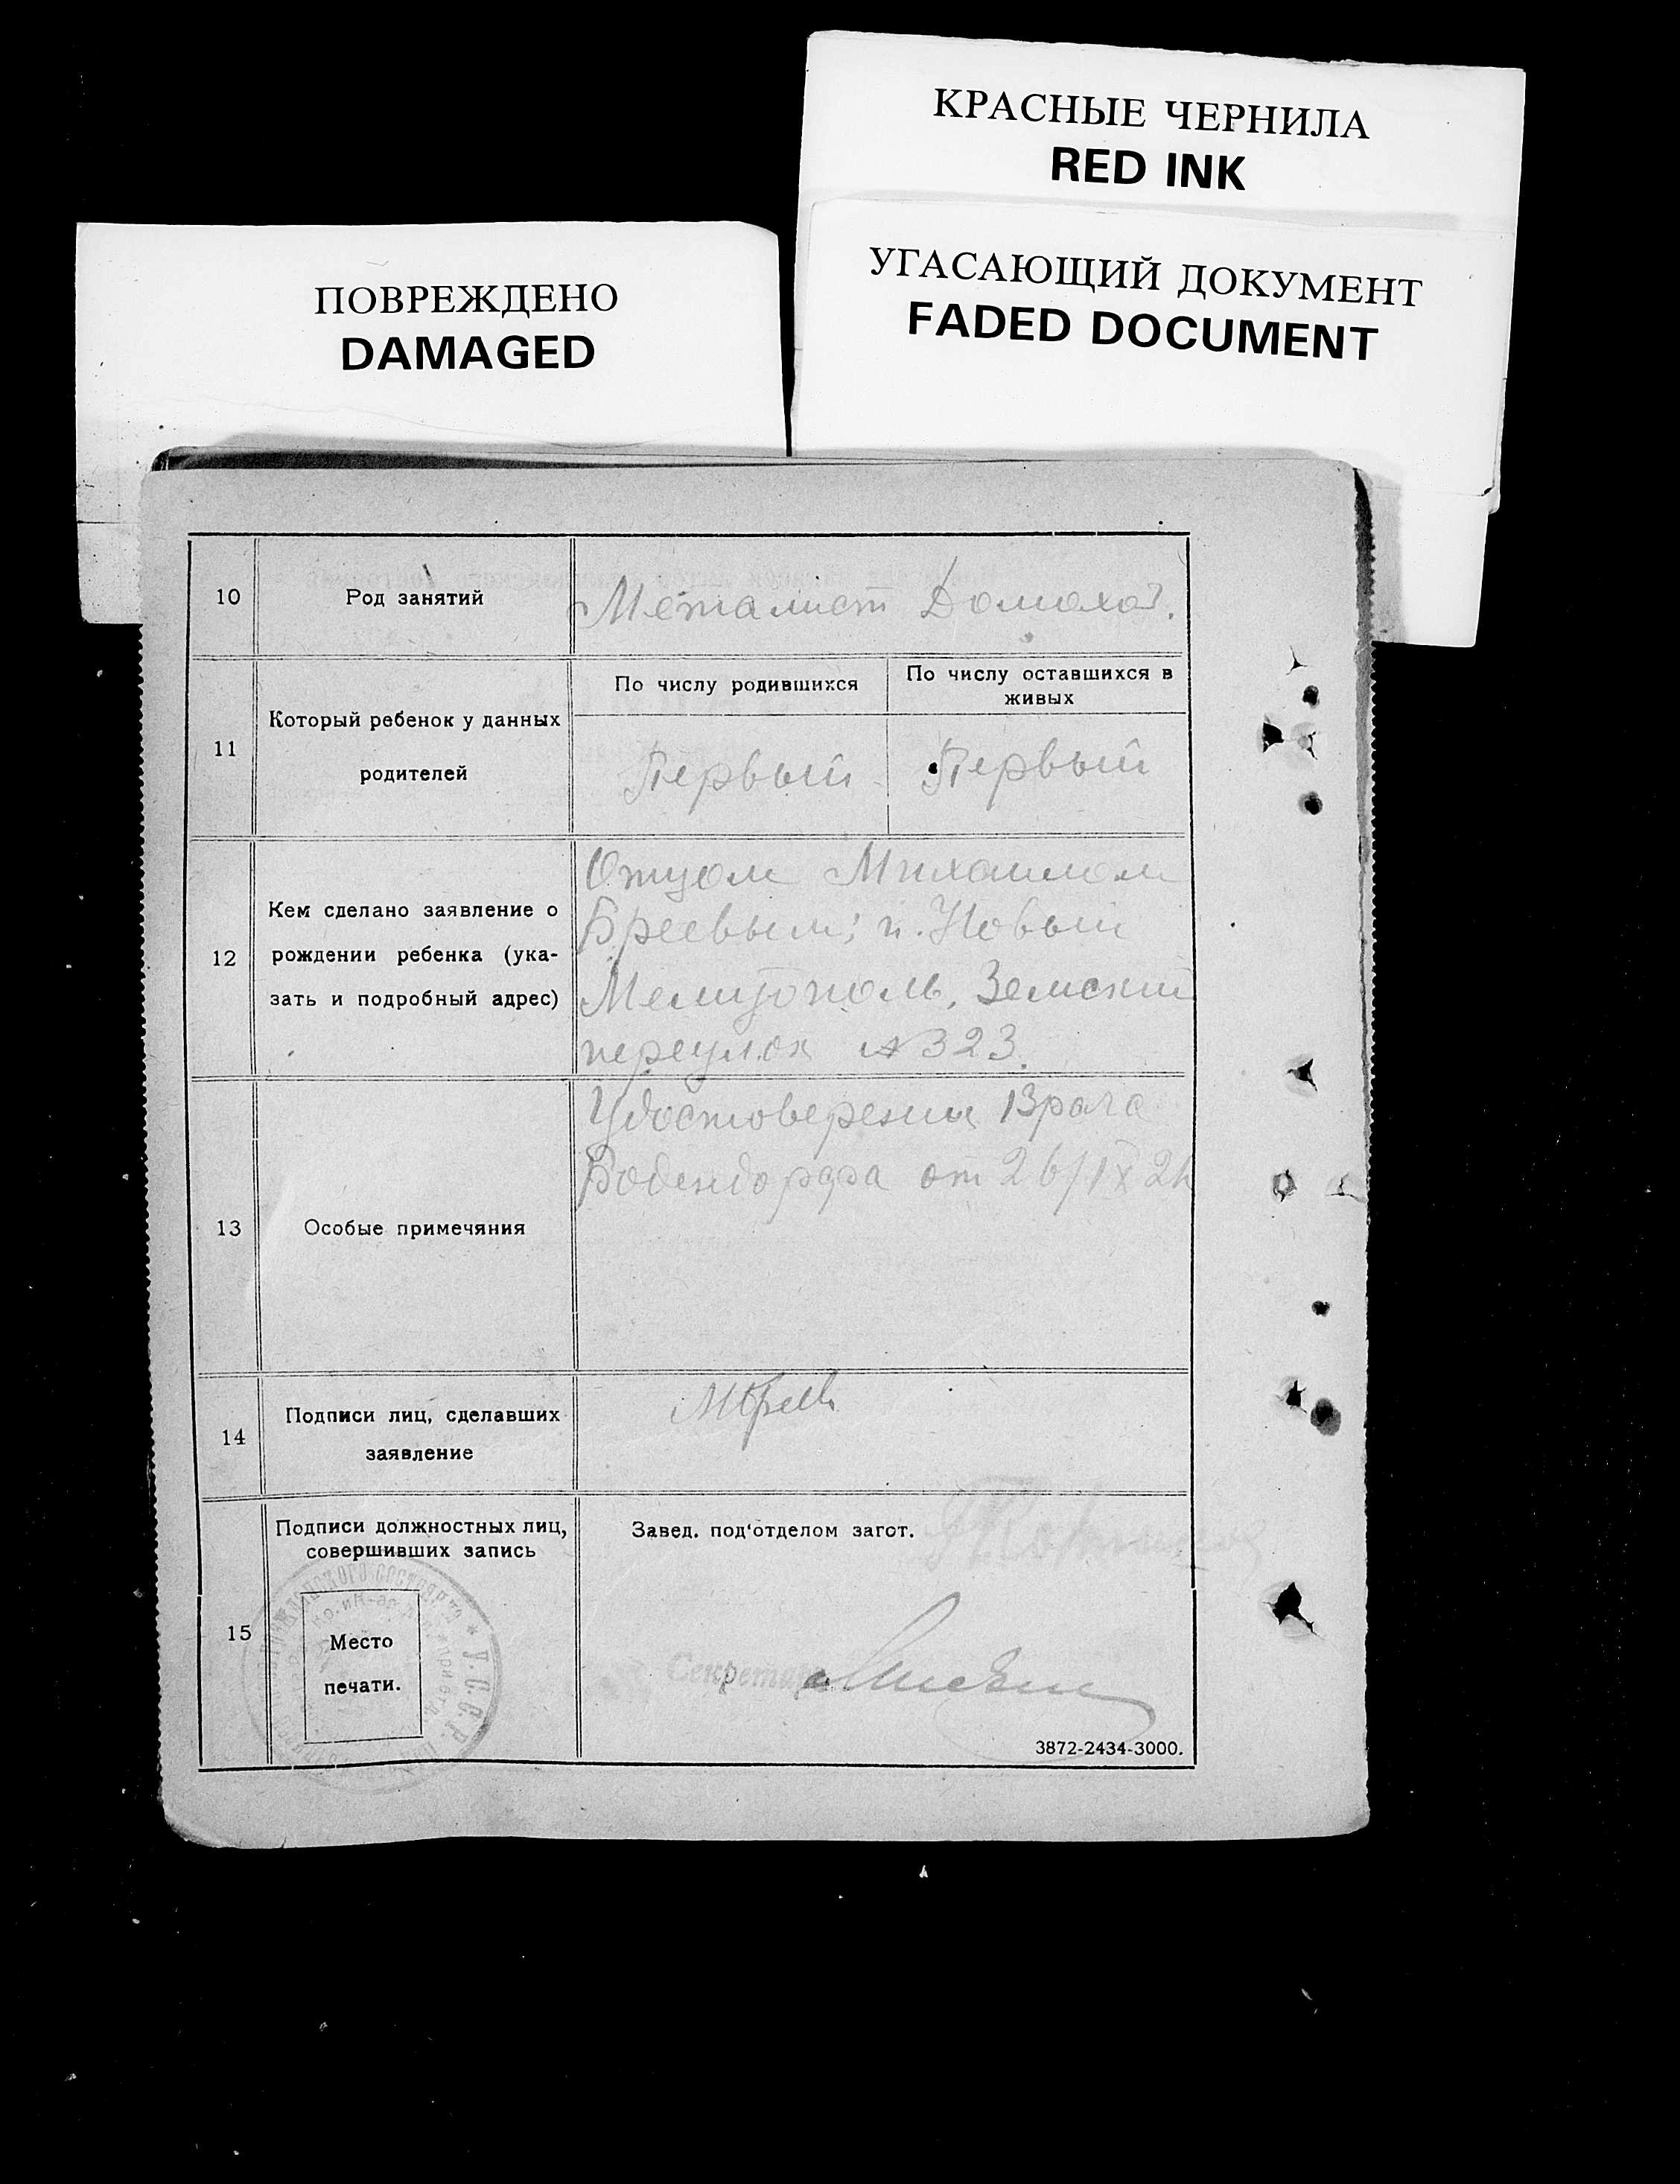 КРАСНЫЕ ЧЕРНИЛА
RED INK
УГАСАЮЩИЙ ДОКУМЕНТ
FADED DOCUMENT
ПОВРЕЖДЕНО
DAMAGED
10
Род занятий
Металист Домохоз.
11
Который ребенок у данных
родителей
По числу родившихся
По числу оставшихся в
живых
Первый
Первый
12
Кем сделано заявление о
рождении ребенка (ука-
зать и подробный адрес)
Отцом Михаилом
Бреевым; п. Новый
Мелитополь, Земский
переулок № 323.
13
Особые примечяния
Удостоверения Врача
от 26/IX 24
14
Подписи лиц, сделавших
заявление
15
Подписи должностных лиц,
совершивших запись
Место
печати.
Завед. под'отделом загот.
Секретарь
3872-2434-3000.
У.С.С.Р.